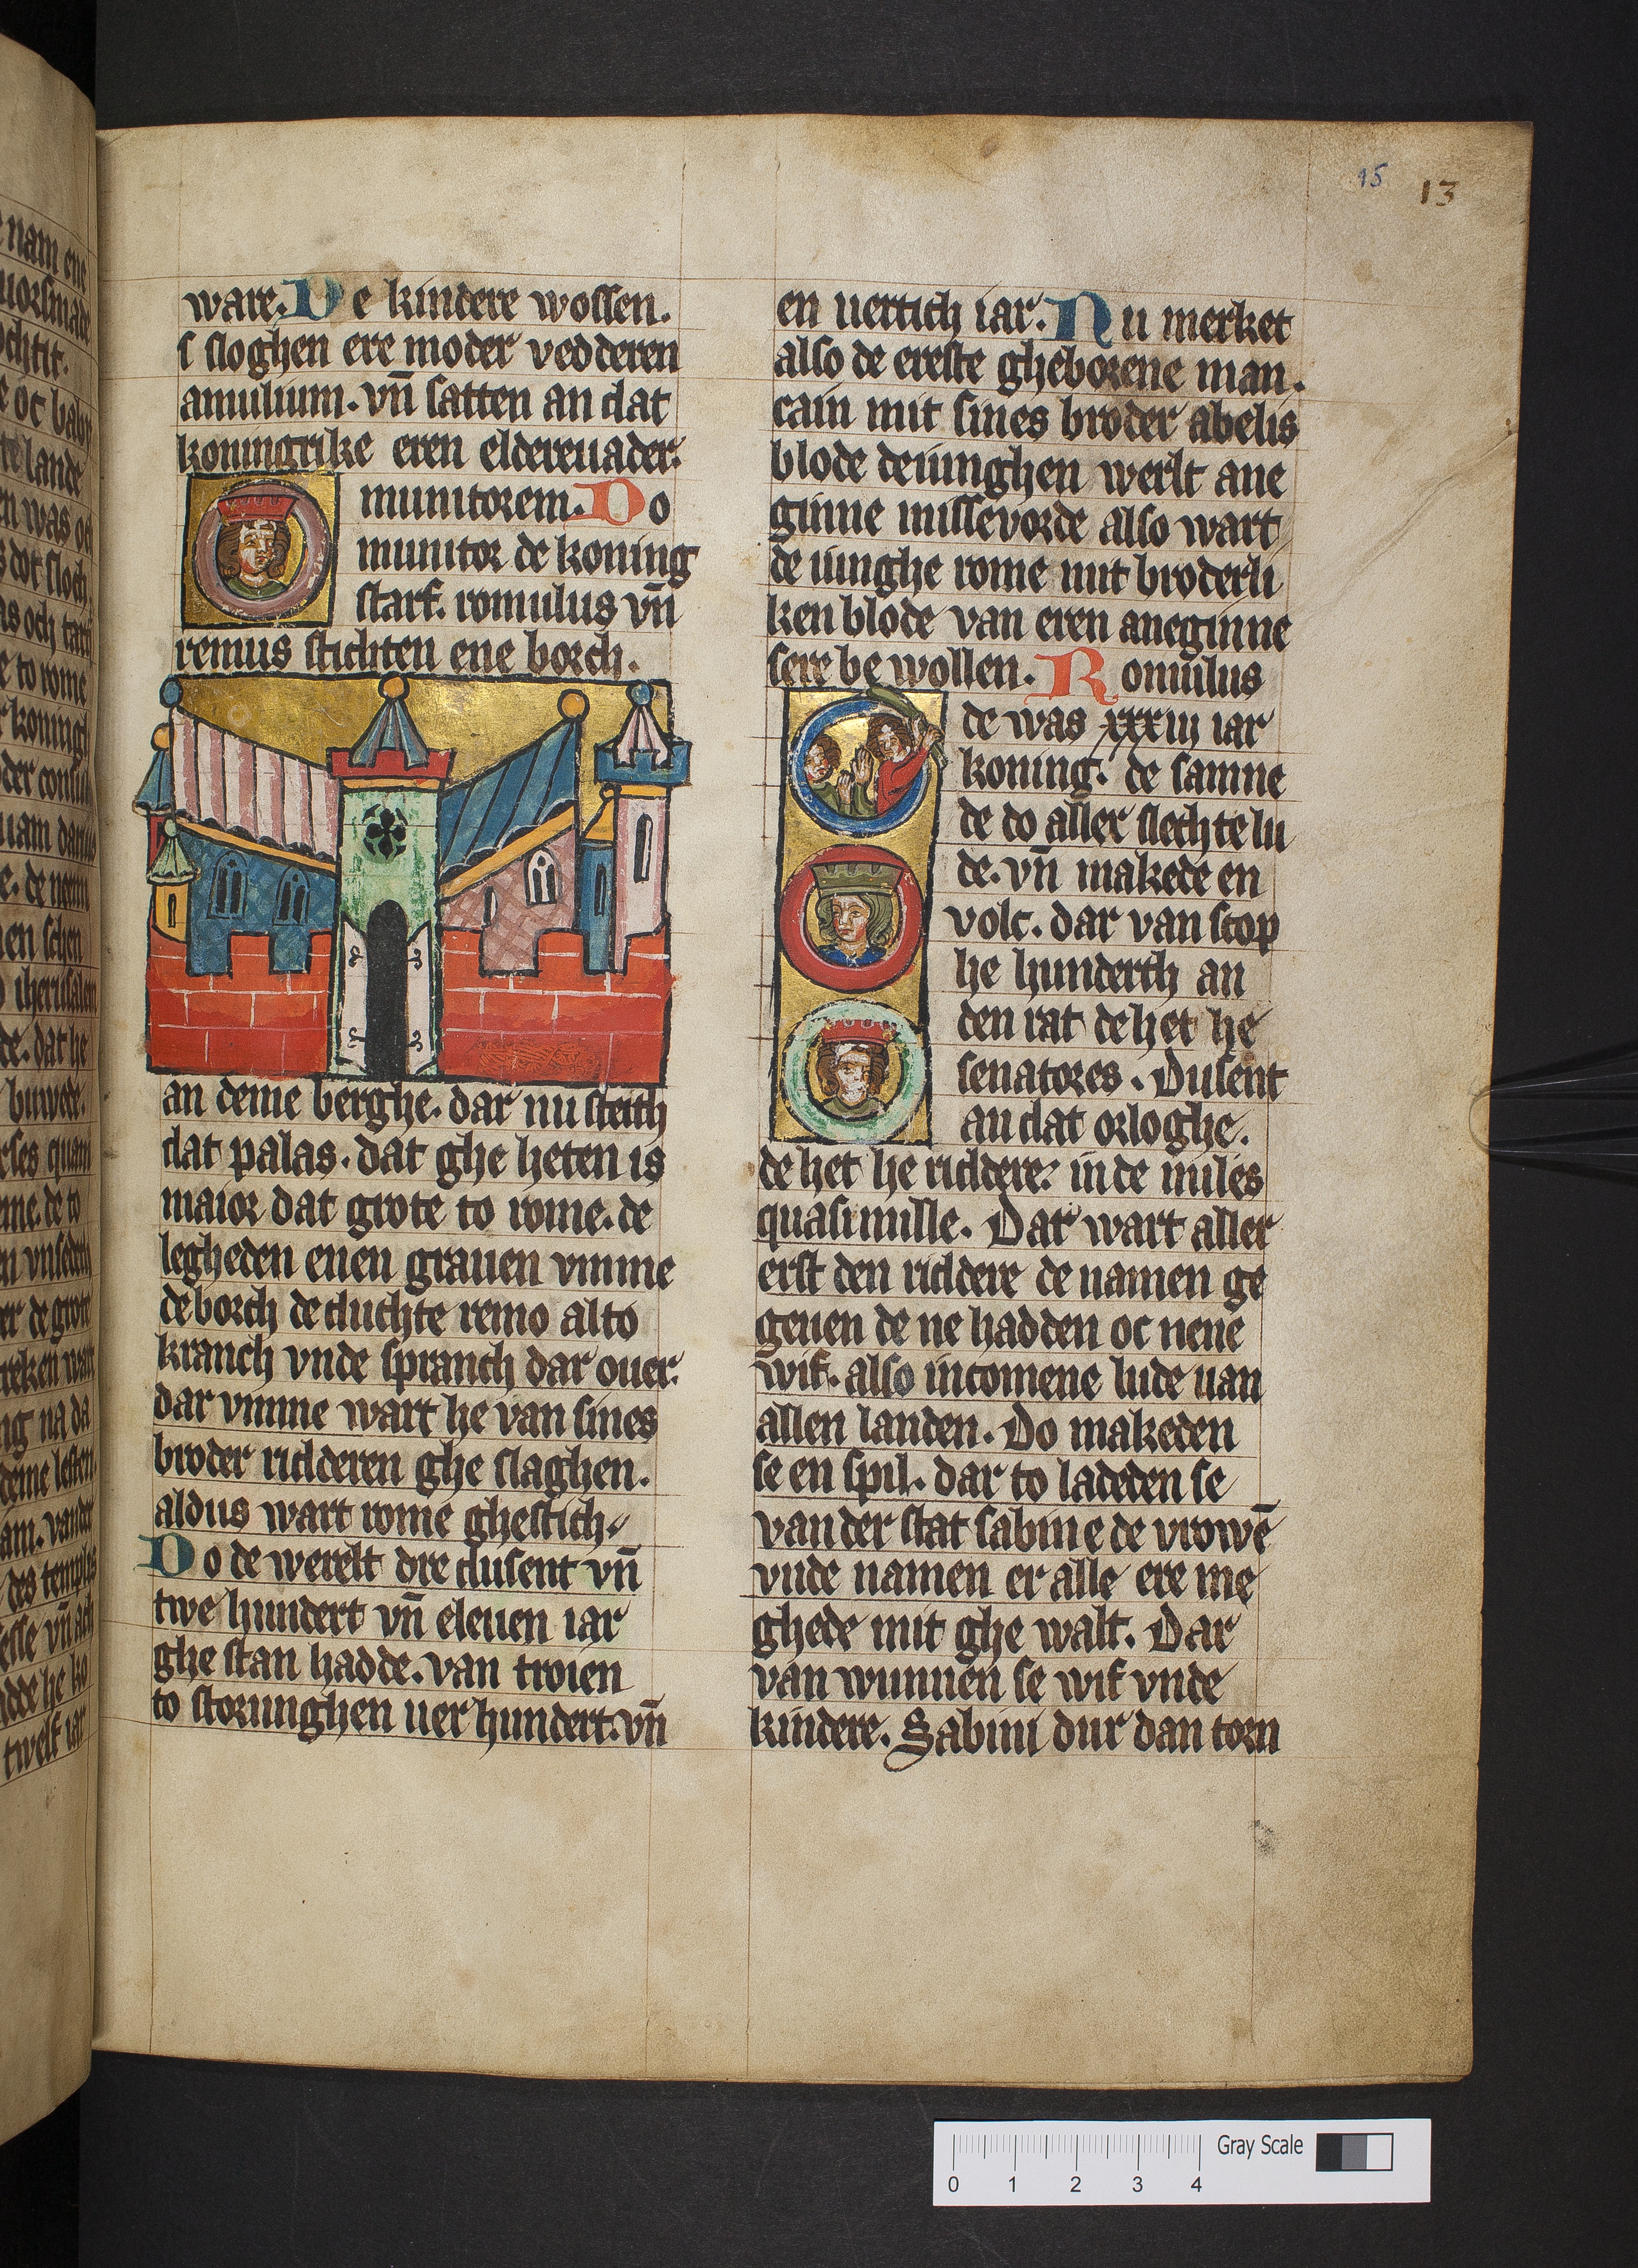 15 13
ware. De kindere wossen.
s sloghen ere moder vedderen
amulium. vn̄ satten an dat
koningrike eren elderenader.
munitorem. Do
munitor de koning
starf. romulus vn̄
remus stichten ene borch.
an deme berghe. dar nu steith
dat palas. dat ghe heten is
maior dat grote to rome. de
legheden enen grauen vmme
de borch de duchte remo alto
kranch vnde spranch dar ouer.
dar vmme wart he van sines
broder ridderen ghe slaghen.
aldus wart rome ghestich
Do de werelt dre dusent vn̄
twe hundert vn̄ eleuen iar
ghe stan hadde. van troien
to storunghen uer hundert. vn̄
en uertich iar. Nu merket
also de ereste gheborene man.
cain mit sines broder abelis
blode de iunghen werlt ane
ginne missevorde also wart
de iunghe rome mit broderli
ken blode van eren aneginne
sere be wollen. Romulus
de was xxxiij iar
koning. de samne
de do aller slechte lu
de. vn̄ makede en
volc. dar van scop
he hunderth an
den rat de het he
senatores. Dusent
an dat orloghe.
de het he riddere. inde miles
quasi mille. Dar wart aller
erst den riddere de namen ge
geuen de ne hadden oc nene
wif. also incomene lude uan
allen landen. Do makeden
se en spil. dar to ladeden se
van der stat sabine de vrowē
vnde namen er alle ere me
ghede mit ghe walt. Dar
van wunnen se wif vnde
kindere. Sabini dur dan torn
Gray Scale
0 1 2 3 4